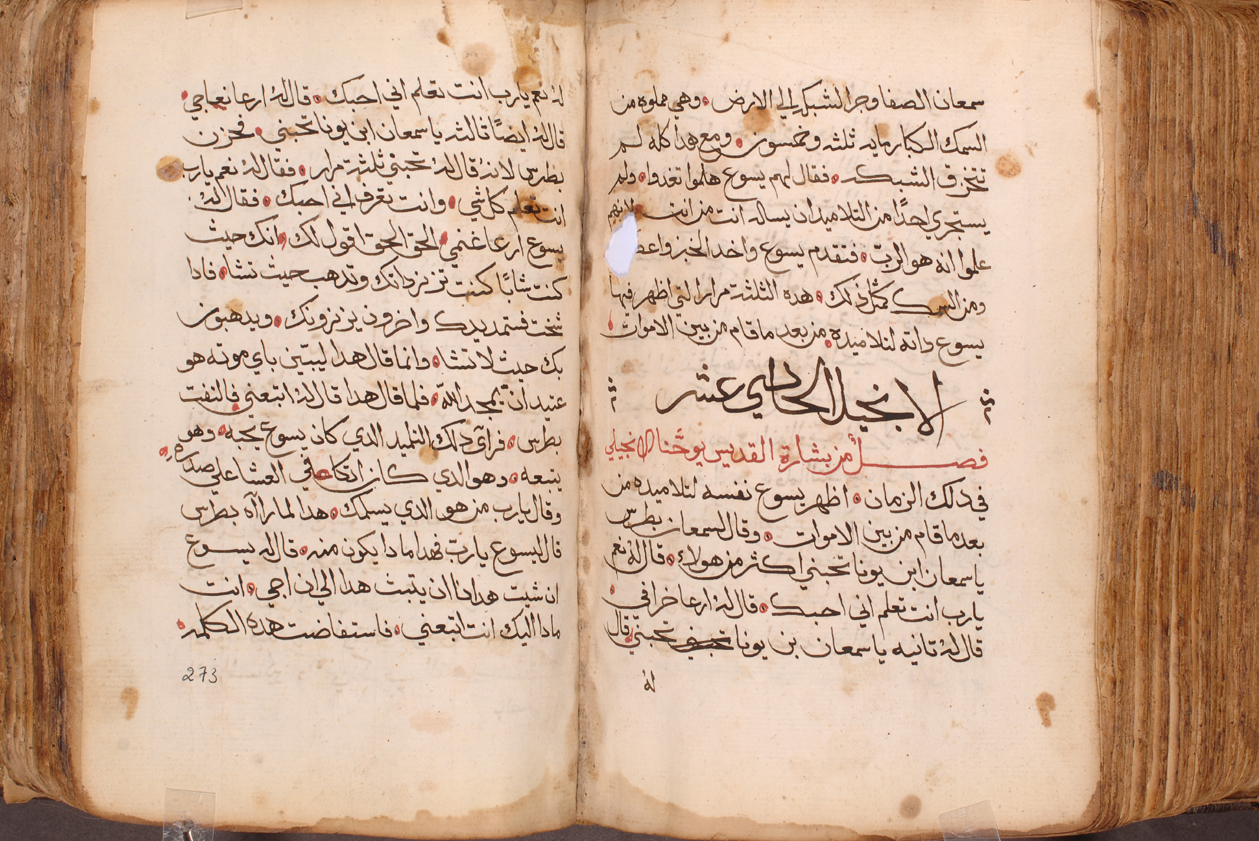 سمعان الصفا وجر الشبكه الي الارض وهي مملوه من
السمك الكبار مايه ثلثه وخمسون ومع هدا كله لم
تتخرق الشبكه فقال لهم يسوع هلموا تغدوا ولم
يستجري احدًا من التلاميد ان يساله انت من انت لانهم
علموا انه هو الربّ فتقدم يسوع واخد الخبز واعط
ومن السمك كمثل ذلك هده الثلثة مرارا التي اظهر فيها
يسوع داته لتلاميده من بعد ما قام من بين الاموات
الانجيل الحادي عشر
فصل أمن بشارة القديس يوحّنا الانجيلي
في دلك الزمان اظهر يسوع نفسه لتلاميده من
بعد ما قام من بين الاموات وقال لسمعان بطرس
يا سمعان ابن يونا تحبني اكثر من هولاء قال له نعم
يارب انت تعلم اني احبك قال له ارعا خرافي
قال له تانيه يا سمعان بن يونا تحبني قال
له
له نعم يارب انت تعلم اني احبك قال له ارعا نعاجي
قال له ايضًا تالته يا سمعان ابن يونا تحبني فحزن
بطرس لانه قال له تحبني ثلثة مرار فقال له نعم يارب
انت تعلم كل شي وانت تعرف اني احبك فقال له
يسوع ارعا غنمي الحق الحق اقول لك انك حيث
كنت شابًا كنت تزنر داتك وتدهب حيث تشا فادا
شخت فستمد يديك واخرون يزنرونك ويدهبون
بك حيث لا تشا وانما قال هدا ليبتين باي موته هو
عتيد ان يمجد الله فلما قال هدا قال له اتبعني فالتفت
بطرس فرآى دلك التلميد الدي كان يسوع يحبه وهو
يتبعه وهو الدي كان اتكا في العشا علي صدره
وقال يارب من هو الدي يسلمك هدا لما راآه بطرس
قال ليسوع يارب فهدا مادا يكون منه قال له يسوع
ان شيت هدا انا ان يتبث هدا الي ان اجي انت
مادا اليك انت اتبعني فاستفاضت هده الكلمه
273